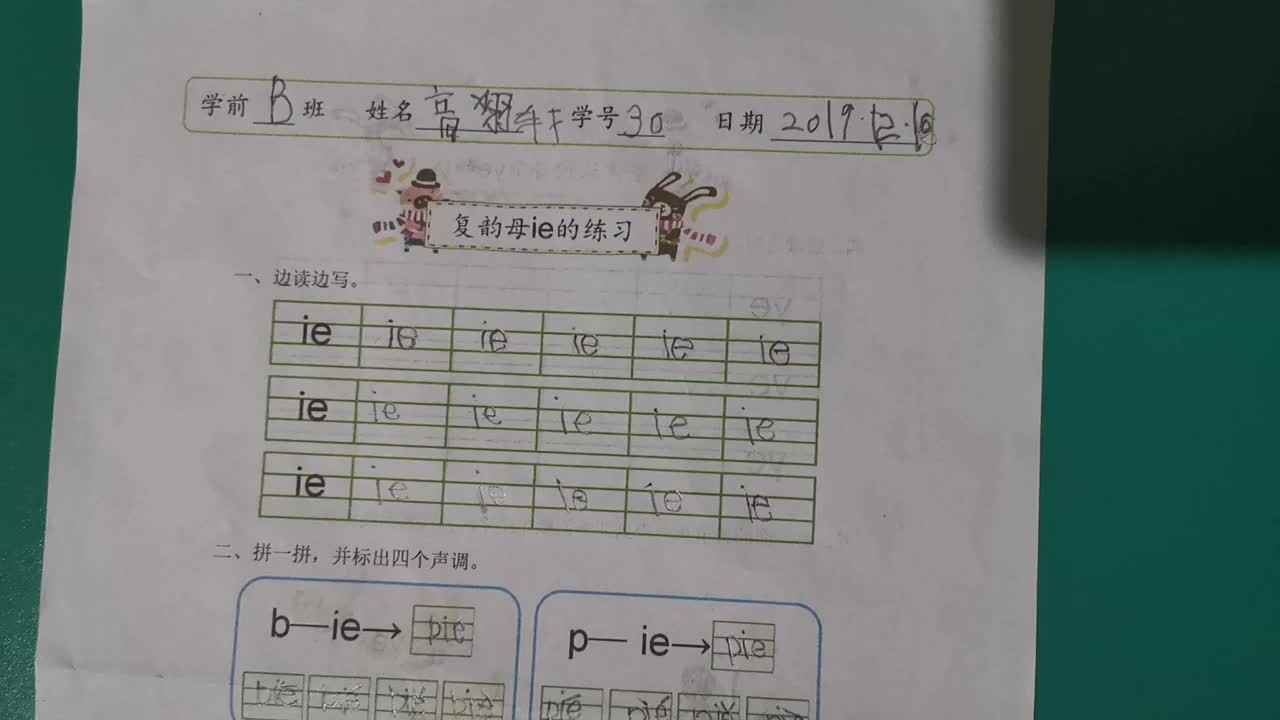 学前 B 班 姓名 高翔轩 学号 30 日期 2019.12.16
复韵母ie的练习
一、边读边写。
ie ie ie ie ie ie
ie ie ie ie ie ie
ie ie ie ie ie ie
二、拼一拼，并标出四个声调。
b—ie→ pie p— ie→ pie